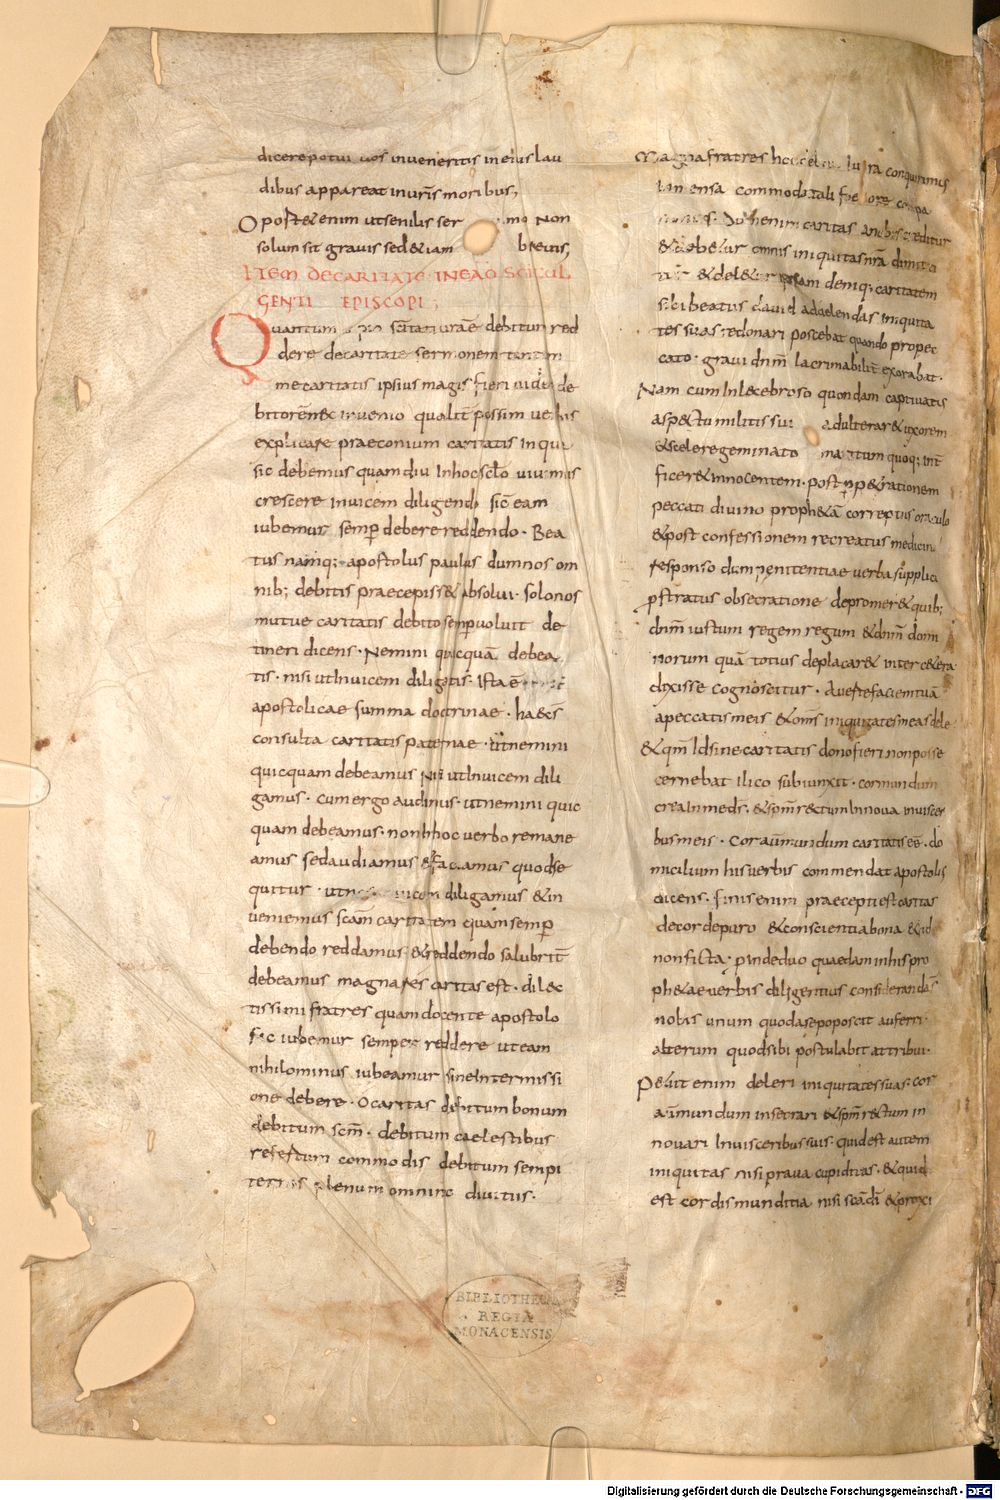 dicere potui uos inueneritis in eius lau
dibus appareat inur̅is moribus;
Oportet enim ut senilis ser mo non
solum sit grauis sed &iam breuis;
ITEM DE CARITATE
GENTI EPISCOPI;
Quantum debitum red
dere de caritate sermonem tantum
me caritatis ipsius magis fieri uideo de
bitorem nec inuenio qualit̅ possim uerbis
explicare praeconium caritatis in qua
sic debemus quamdiu Inhoc sc̅lo uiuimus
crescere inuicem diligendo sic eam
iubemur semp̅ debere reddendo · Bea
tus namq; apostolus paulus dum nos om
nib; debitis praecepiss& absolui · solo nos
mutue caritatis debito semp̅ uoluit de
tineri dicens · Nemini quicquā debea
tis · nisi ut Inuicem diligatis · Ista ē
apostolicae summa doctrinae · haec ē
consulta caritatis paternae · ut nemini
quicquam debeamus Nisi ut Inuicem dili
gamus · cum ergo audimus · ut nemini quic
quam debeamus · non In hoc uerbo remane
amus sed audiamus & faciamus quod se
quitur · ut diligamus & in
ueniemus sc̅am caritatem quam semp̅
debendo reddamus & reddendo salubrit̅
debeamus magna res caritas est · dilec
tissimi fratres quam docente apostolo
sic iubemur semper reddere ut eam
nihilominus iubeamur sine Intermissi
one debere · O caritas debitum bonum
debitum sc̅m · debitum caelestibus
refertum commodis debitum sempi
ternis plenum omnino diuitiis ·
Magna fratres hoc lucra conquirimus
Inmensa commoditati foenore compa
enim caritas creditur
& debetur omnis iniquitas nr̅a dimitta
tur & deletur ipsam deniq; caritatem
sibi beatus dauid ad delendas iniquita
tes suas redonari poscebat quando pro pec
cato · graui dnm̅ lacrimabilit̅ exorabat ·
Nam cum Inlecebroso quondam captiuatus
aspectu militis sui adulterar& uxorem
& scelere geminato maritum quoq; int̅
ficer& innocentem · post perp&rationem
peccati diuino proph&ā correptus oraculo
& post confessionem recreatus medicin
responso dum penitentiae uerba supplici
p̱stratus obsecratione deprome& quib;
dnm̅ iustum regem regum & dnm̅ domi
norum quā totius deplacar& inter c&era
dixisse cognoscitur · Auerte faciem tuā
a peccatis meis & om̅s iniquitates meas dele
& qm̅ Id sine caritatis dono fieri non posse
cernebat ilico subiunxit · cor mundum
crea In me ds̅ · & spm̅ rectum Innoua in uiscer
bus meis · Cor au̅ mundum caritatis ee̅ · do
micilium his uerbis commendat apostolus
dicens · finis enim praecepti est caritas
de corde puro & conscientia bona & fid
non ficta · p̱inde duo quaedam in his pro
ph&ae uerbis diligentius consideranda s̅
nobis unum quod a se poposcit auferri ·
alterum quod sibi postulabit attribui ·
Petiit enim deleri iniquitates suas · cor
au̅ mundum in se crari & spm̅ rectum in
nouari In uisceribus suis · quid est autem
iniquitas nisi praua cupiditas · & quid
est cordis munditia nisi sc̅a di̅ & proxi
BIBLIOTHECA
REGIA
MONACENSIS
Digitalisierung gefördert durch die Deutsche Forschungsgemeinschaft - DFG